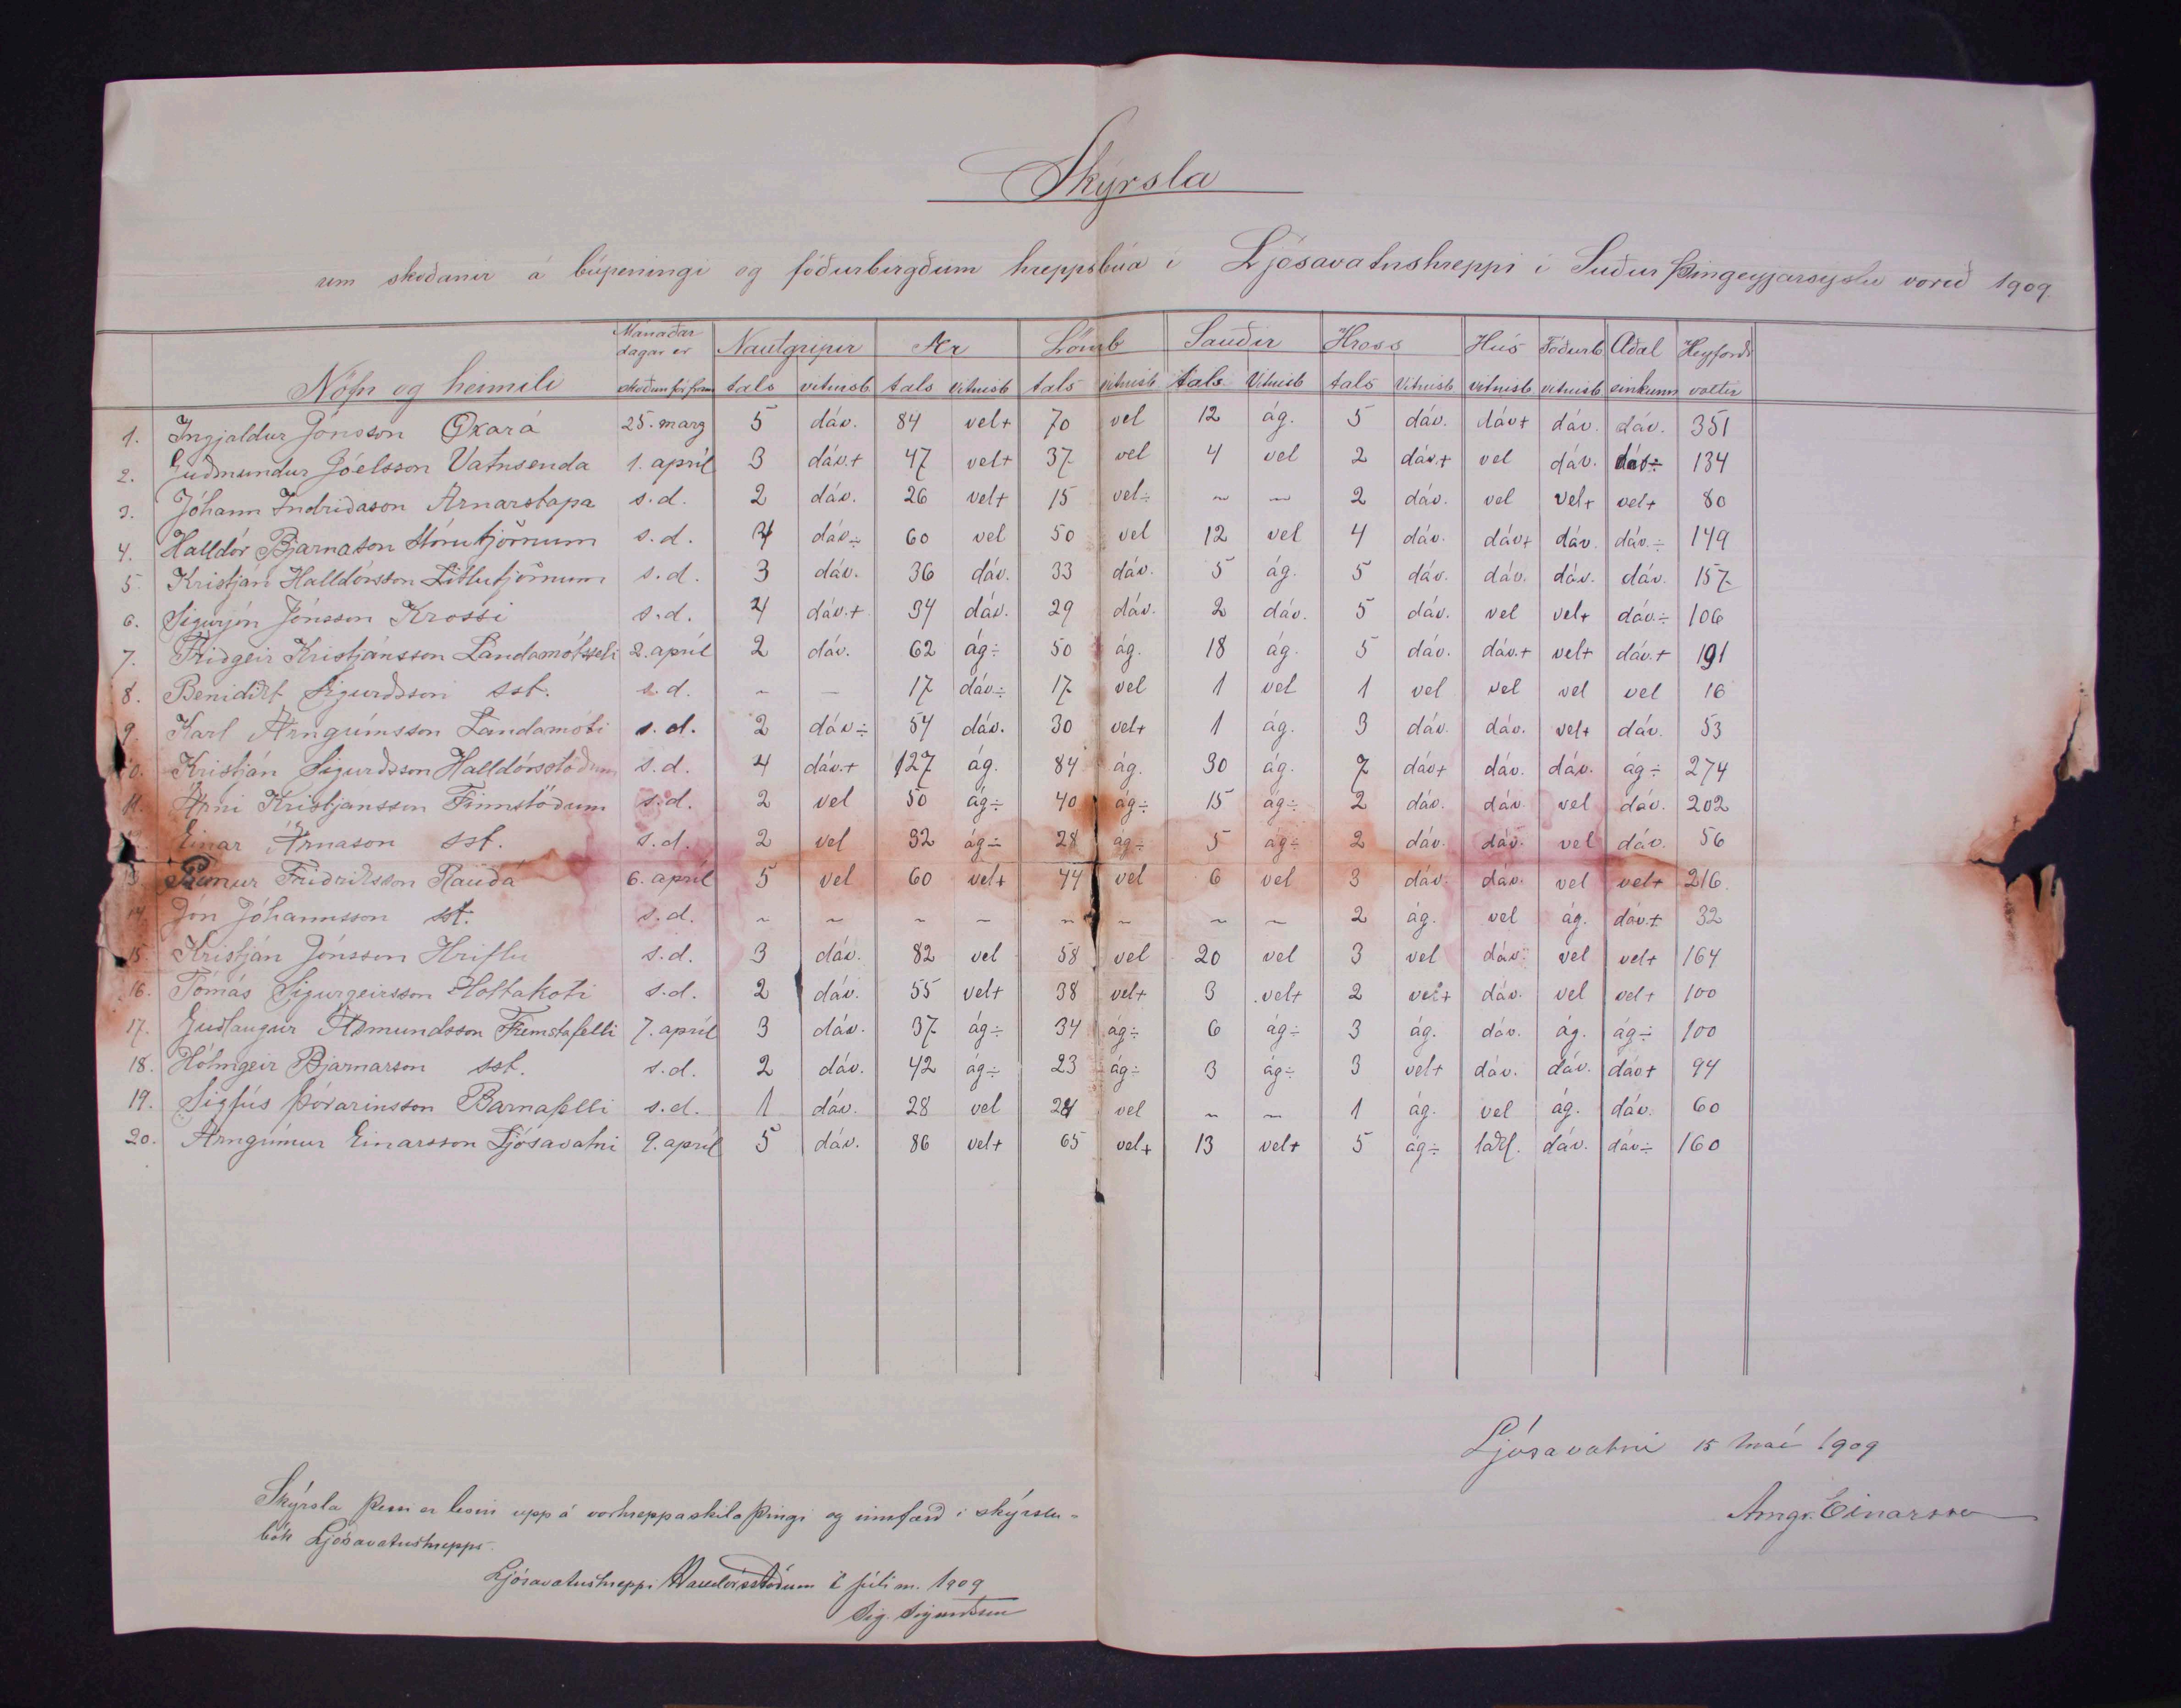 Skýrsla
um skoðanir á búpeningi og fóðurbirgðum hreppsbúa í Ljósavatnshreppi í Suður Þingeyjarsýslu vorið 1909.
Nöfn og heimili | Mánaðar dagar er skoðun fór fram | Nautgripir tals vitnisb | Ær tals vitnisb | Lömb tals vitnisb | Sauðir tals Vitnisb | Hross tals Vitnisb | Hús vitnisb | Fóðurb vitnisb | Aðal einkunn | Heyforði vættir
1. Ingjaldur Jónsson Öxará 25. marz 5 dáv. 84 vel+ 70 vel 12 ág. 5 dáv. dáv+ dáv. dáv. 351
2. Guðmundur Jóelsson Vatnsenda 1. apríl 3 dáv.+ 47 vel+ 37 vel 4 vel 2 dáv.+ vel dáv. dáv÷ 134
3. Jóhann Indriðason Arnarstapa s.d. 2 dáv. 26 vel+ 15 vel÷ ~ ~ 2 dáv. vel vel+ vel+ 80
4. Halldór Bjarnason Stórutjörnum s.d. 4 dáv÷ 60 vel 50 vel 12 vel 4 dáv. dáv+ dáv. dáv.÷ 149
5. Kristján Halldórsson Litlutjörnum s.d. 3 dáv. 36 dáv. 33 dáv. 5 ág. 5 dáv. dáv. dáv. dáv. 157
6. Sigurjón Jónsson Krossi s.d. 4 dáv.+ 34 dáv. 29 dáv. 2 dáv. 5 dáv. vel vel+ dáv.÷ 106
7. Friðgeir Kristjánsson Landamótsseli 2. apríl 2 dáv. 62 ág÷ 50 ág. 18 ág. 5 dáv. dáv.+ vel+ dáv.+ 191
8. Benidikt Sigurðsson sst. s.d. ~ — 17 dáv÷ 17 vel 1 vel 1 vel vel vel vel 16
9. Karl Arngrímsson Landamóti s.d. 2 dáv÷ 54 dáv. 30 vel+ 1 ág. 3 dáv. dáv. vel+ dáv. 53
10. Kristján Sigurðsson Halldórsstöðum s.d. 4 dáv.+ 127 ág. 84 ág. 30 ág. 7 dáv+ dáv. dáv. ág÷ 274
11. Árni Kristjánsson Finnstöðum s.d. 2 vel 50 ág÷ 40 ág÷ 15 ág÷ 2 dáv. dáv. vel dáv. 202
Einar Árnason sst. s.d. 2 vel 32 ág÷ 28 ág÷ 5 ág÷ 2 dáv. dáv. vel dáv. 56
13. Friðriksson Rauðá 6. apríl 5 vel 60 vel+ 44 vel 6 vel 3 dáv. dáv. vel vel+ 216.
14. Jón Jóhannsson sst. s.d. ~ ~ ~ ~ ~ ~ ~ ~ 2 ág. vel ág. dáv.+ 32
15. Kristján Jónsson Hriflu s.d. 3 dáv. 82 vel 58 vel 20 vel 3 vel dáv. vel vel+ 164
16. Tómás Sigurgeirsson Holtakoti s.d. 2 dáv. 55 vel+ 38 vel+ 3 vel+ 2 vel+ dáv. vel vel+ 100
17. Guðlaugur Ásmundsson Fremstafelli 7. apríl 3 dáv. 37 ág÷ 34 ág÷ 6 ág÷ 3 ág. dáv. ág. ág÷ 100
18. Hólmgeir Bjarnarson sst. s.d. 2 dáv. 42 ág÷ 23 ág÷ 3 ág÷ 3 vel+ dáv. dáv. dáv+ 94
19. Sigfús Þórarinsson Barnafelli s.d. 1 dáv. 28 vel 24 vel ~ ~ 1 ág. vel ág. dáv. 60
20. Arngrímur Einarsson Ljósavatni 9. apríl 5 dáv. 86 vel+ 65 vel+ 13 vel+ 5 ág÷ lakl. dáv. dáv÷ 160
Ljósavatni 15 maí 1909
Arngr. Einarsson
Skýrsla þessi er lesin upp á vorhreppaskilaþingi og innfærð í skýrslu-
bók Ljósavatnshrepps.
Ljósavatnshreppi Halldórsstöðum júlí m. 1909
Sig. Sigurðsson